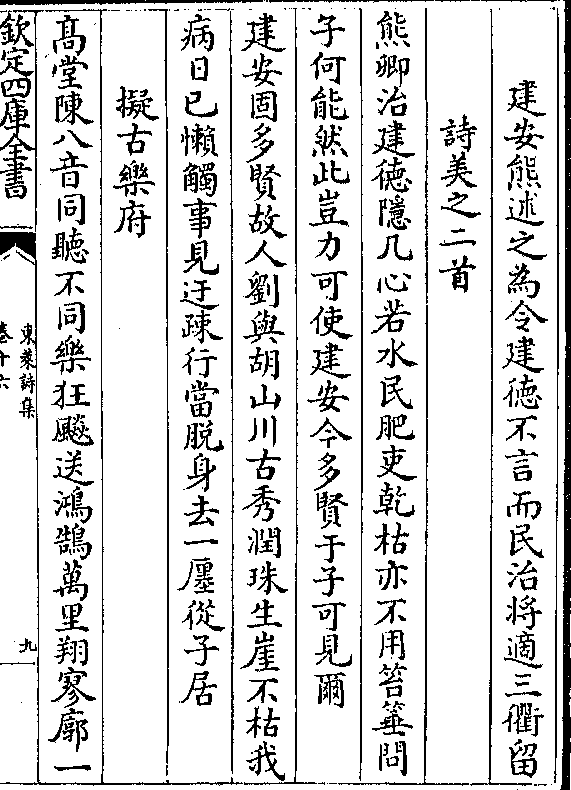 建安熊述之為令建徳不言而民治将適三衢留
詩美之二首
熊卿治建徳隱几心若水民肥吏乾枯亦不用笞箠問
子何能然此豈力可使建安今多賢于子可見爾
建安固多賢故人劉與胡山川古秀潤珠生崖不枯我
病日已懶觸事見迂踈行當脱身去一廛從子居
擬古樂府
髙堂陳八音同聽不同樂狂飈送鴻鵠萬里翔寥廓一
欽定四庫全書
東萊詩集
卷十六
九